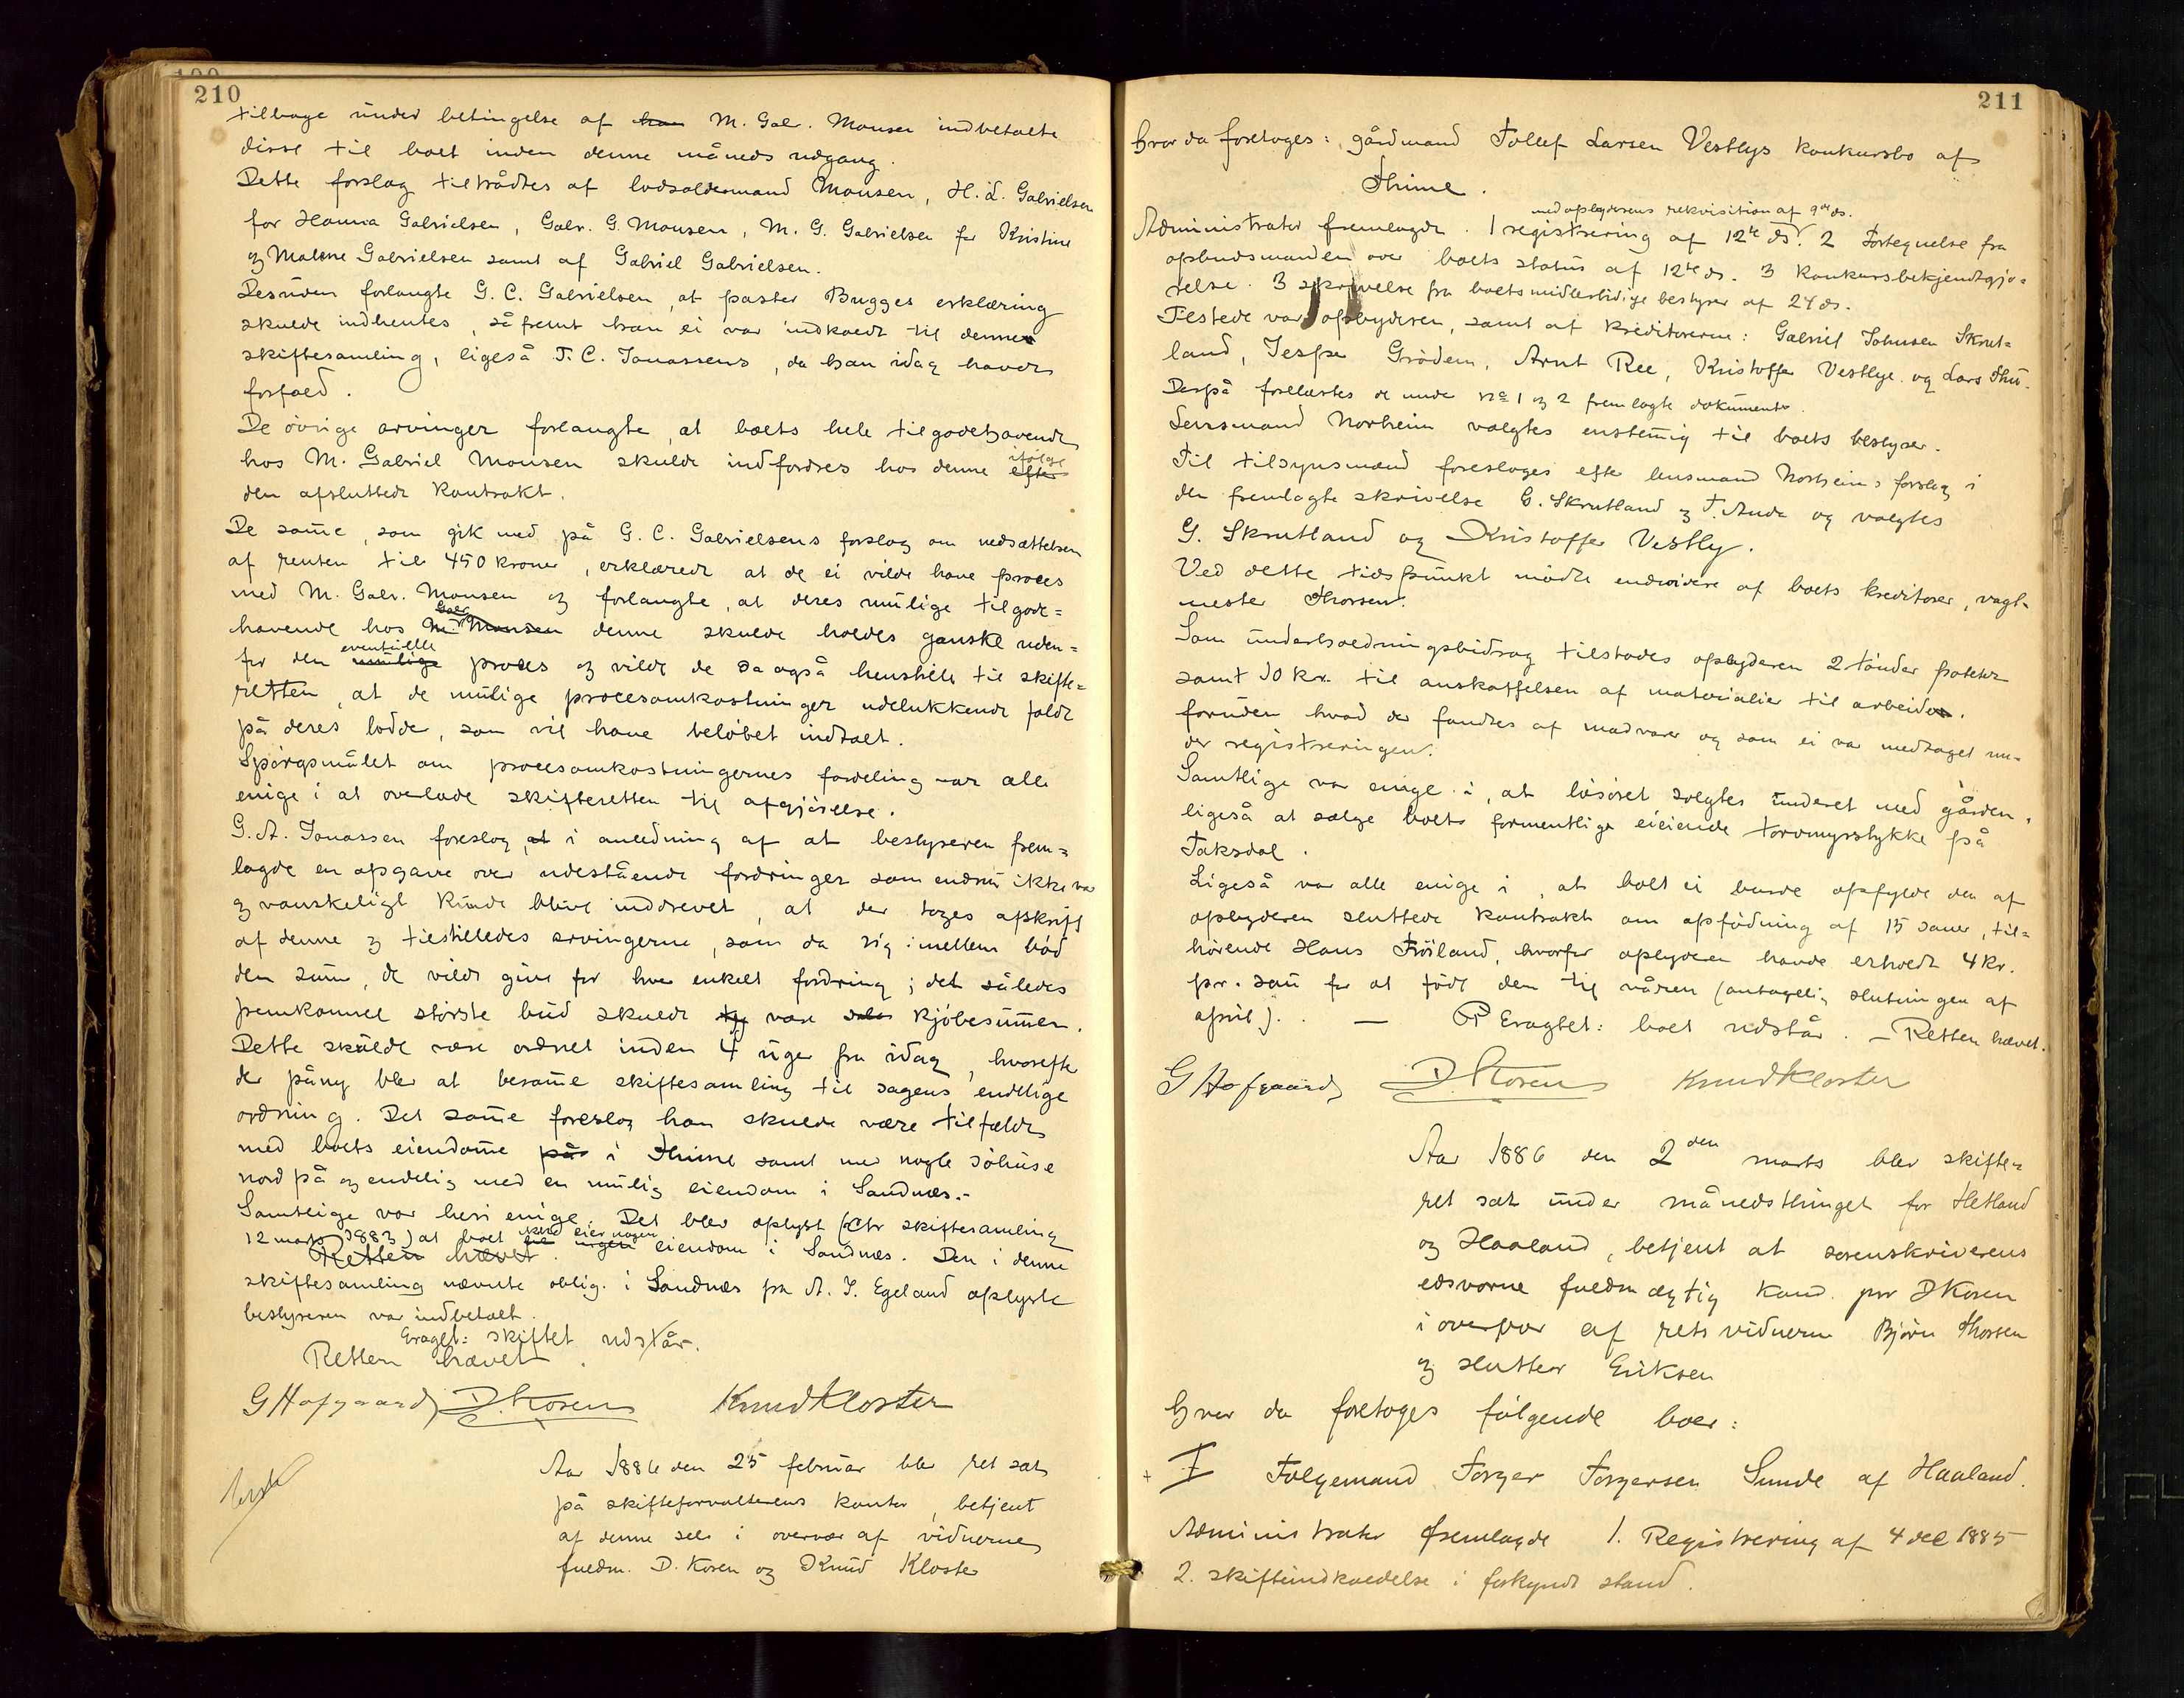 210
tilbage under betingelse af han M. Gal. Monsen indbetalte
disse til boet inden denne måneds udgang.
Dette forslag tiltrådtes af lodsoldermand Monsen, H. L. Gabrielsen
for Hanna Gabrielsen, Gabr. G. Monsen, M. G. Gabrielsen for Kristine
og Malene Gabrielsen samt af Gabriel Gabrielsen.
Desuden forlangte G. C. Gabrielsen, at pastor Bugges erklæring
skulde indhentes, såfremt han ei var indkaldt til denne
skiftesamling, ligeså T. C. Jonassens, da han idag havde
forfald.
De øvrige arvinger forlangte, at boets hele tilgodehavende
hos M. Gabriel Monsen skulde indfordres hos denne efter ifølge
den afsluttede kontrakt.
De samme, som gik med på G. C. Gabrielsens forslag om nedsættelsen
af renten til 450 kroner, erklærede at de ei vilde have proces
med M. Gabr. Monsen og forlangte, at deres mulige tilgode=
havende hos M. Gabr. Monsen denne skulde holdes ganske uden=
for den mulige eventuelle proces og vilde de da også henstille til skifte=
retten, at de mulige procesomkostninger udelukkende faldt
på deres lodder, som vil have beløbet indtalt.
Spørgsmålet om procesomkostningernes fordeling var alle
enige i at overlade skifteretten til afgjørelse.
G. A. Jonassen foreslog, at i anledning af at bestyreren frem=
lagde en opgave over udestående fordringer som endnu ikke var
og vanskeligt kunde blive inddrevet, at der toges afskrift
af denne og tilstilledes arvingerne, som da sig imellem bød
den sum, de vilde give for hver enkelt fordring; det således
fremkomne største bud skulde være kjøbesummen.
Dette skulde være ordnet inden 4 uger fra idag, hvorefter
der påny blev at beramme skiftesamling til sagens endelige
ordning. Det samme foreslog han skulde være tilfældet
med boets eiendomme på i Thime samt med nogle søhuse
nord på og endelig med en mulig eiendom i Sandnæs.-
Samtlige var heri enige. Det blev oplyst (cfr skiftesamling
12 marts 1883) at boet neppe eier nogen eiendom i Sandnæs. Den i denne
Retten hævet.
skiftesamling nævnte oblig. i Sandnæs fra A. J. Egeland oplyste
bestyreren var indbetalt.
Eragtet: skiftet udstår.
Retten hævet.
G Hofgaard D. Koren Knud Kloster
Aar 1886 den 25 februar blev ret sat
på skifteforvalterens kontor, betjent
af denne selv i overvær af vidnerne
fuldm. D. Koren og Knud Kloster
211
hvor da foretoges: gårdmand Tollef Larsen Vestlys konkursbo af
Thime.
med opbyderens rekvisition af 9de ds.
Administrator fremlagde. 1 registrering af 12te ds. 2 Fortegnelse fra
opbudsmanden over boets status af 12te ds. 3 konkursbekjendtgjø=
relse. 3 skrivelse fra boets midlertidige bestyrer af 24 ds.
Tilstede var opbyderen, samt af kreditorerne: Gabriel Johnsen Skrut=
land, Jesper Grødem, Arnt Ree, Kristoffer Vestlye og Lars Thu.
Derpå forelæstes de under no 1 og 2 fremlagte dokumenter.
Lensmand Norheim valgtes enstemmig til boets bestyrer.
Til tilsynsmænd foresloges efter lensmand Norheims forslag i
den fremlagte skrivelse G. Skrutland og T. Auda og valgtes
G. Skrutland og Kristoffer Vestly.
Ved dette tidspunkt mødte endvidere af boets kreditorer, vagt=
mester Thorsen.
Som underholdningsbidrag tilstodes opbyderen 2 tønder poteter
samt 10 kr. til anskaffelsen af materialier til arbeide.
foruden hvad der fandtes af madvarer og som ei var medtaget un=
der registreringen.
Samtlige var enige i, at løsøret solgtes underet med gården,
ligeså at sælge boets formentlige eiende torvmyrstykke på
Taksdal.
Ligeså var alle enige i, at boet ei burde opfylde den af
opbyderen sluttede kontrakt om opfødning af 15 sauer, til=
hørende Hans Frøiland, hvorfor opbyderen havde erholdt 4 kr.
pr. sau for at føde dem til våren (antagelig slutningen af
april). — Eragtet: boet udstår. — Retten hævet.
G Hofgaard D. Koren Knud Kloster
Aar 1886 den 2den marts blev skifte=
ret sat under månedsthinget for Hetland
og Haaland, betjent af sorenskriverens
edsvorne fuldmægtig kand. jur D Koren
i overvær af retsvidnerne Bjørn Thorsen
og slutter Eriksen
hvor da foretoges følgende boer:
I Følgemand Torger Torgersen Sunde af Haaland.
Administrator fremlagde 1. Registrering af 4 dec 1885
2. skifteindkaldelse i forkyndt stand.